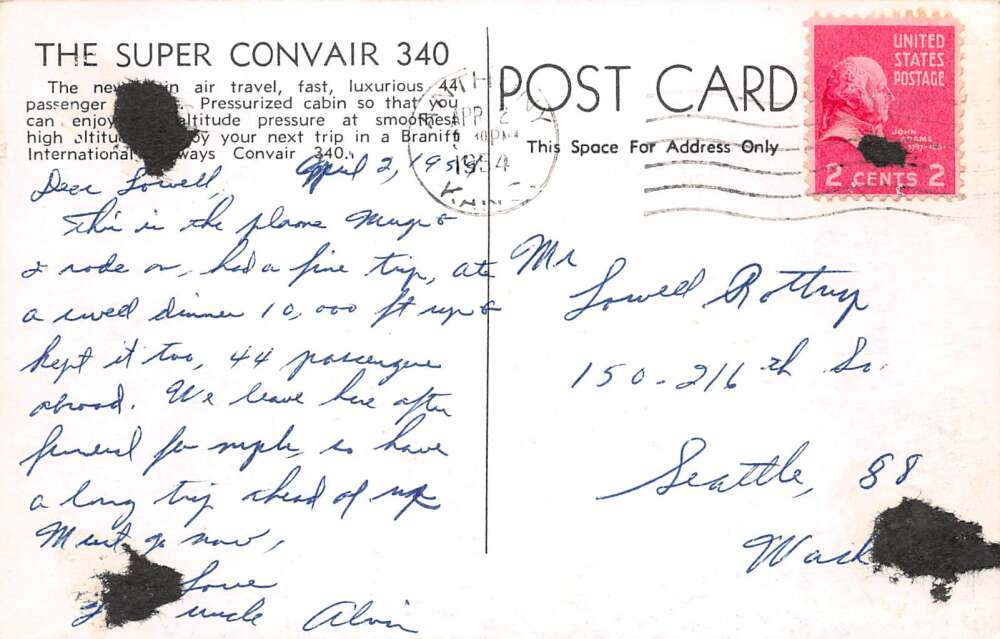 THE SUPER CONVAIR 340
The in air travel, fast, luxurious 44
passenger Pressurized cabin so that you
can enjoy altitude pressure at smoothest
high by your next trip in a Braniff
International Convair 340.
April 2, 1954
Dear Lowell,
This is the plane &
I rode on, had a fine trip, ate
a swell dinner 10,000 ft up &
kept it too, 44 passengers
aboard. We leave here after
funeral for so have
a long trip ahead of us
Must go now,
Love
uncle Alvin
POST CARD
This Space For Address Only
APR 2
PM
1954
KANS
UNITED
STATES
POSTAGE
JOHN
ADAMS
2 CENTS 2
Mr
Lowell
150-216th So.
Seattle, 88
Wash